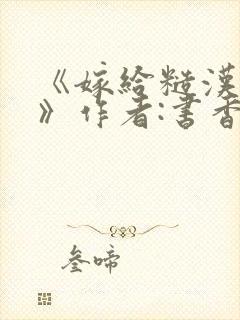 《嫁给糙汉
》作者:书香
叁啼